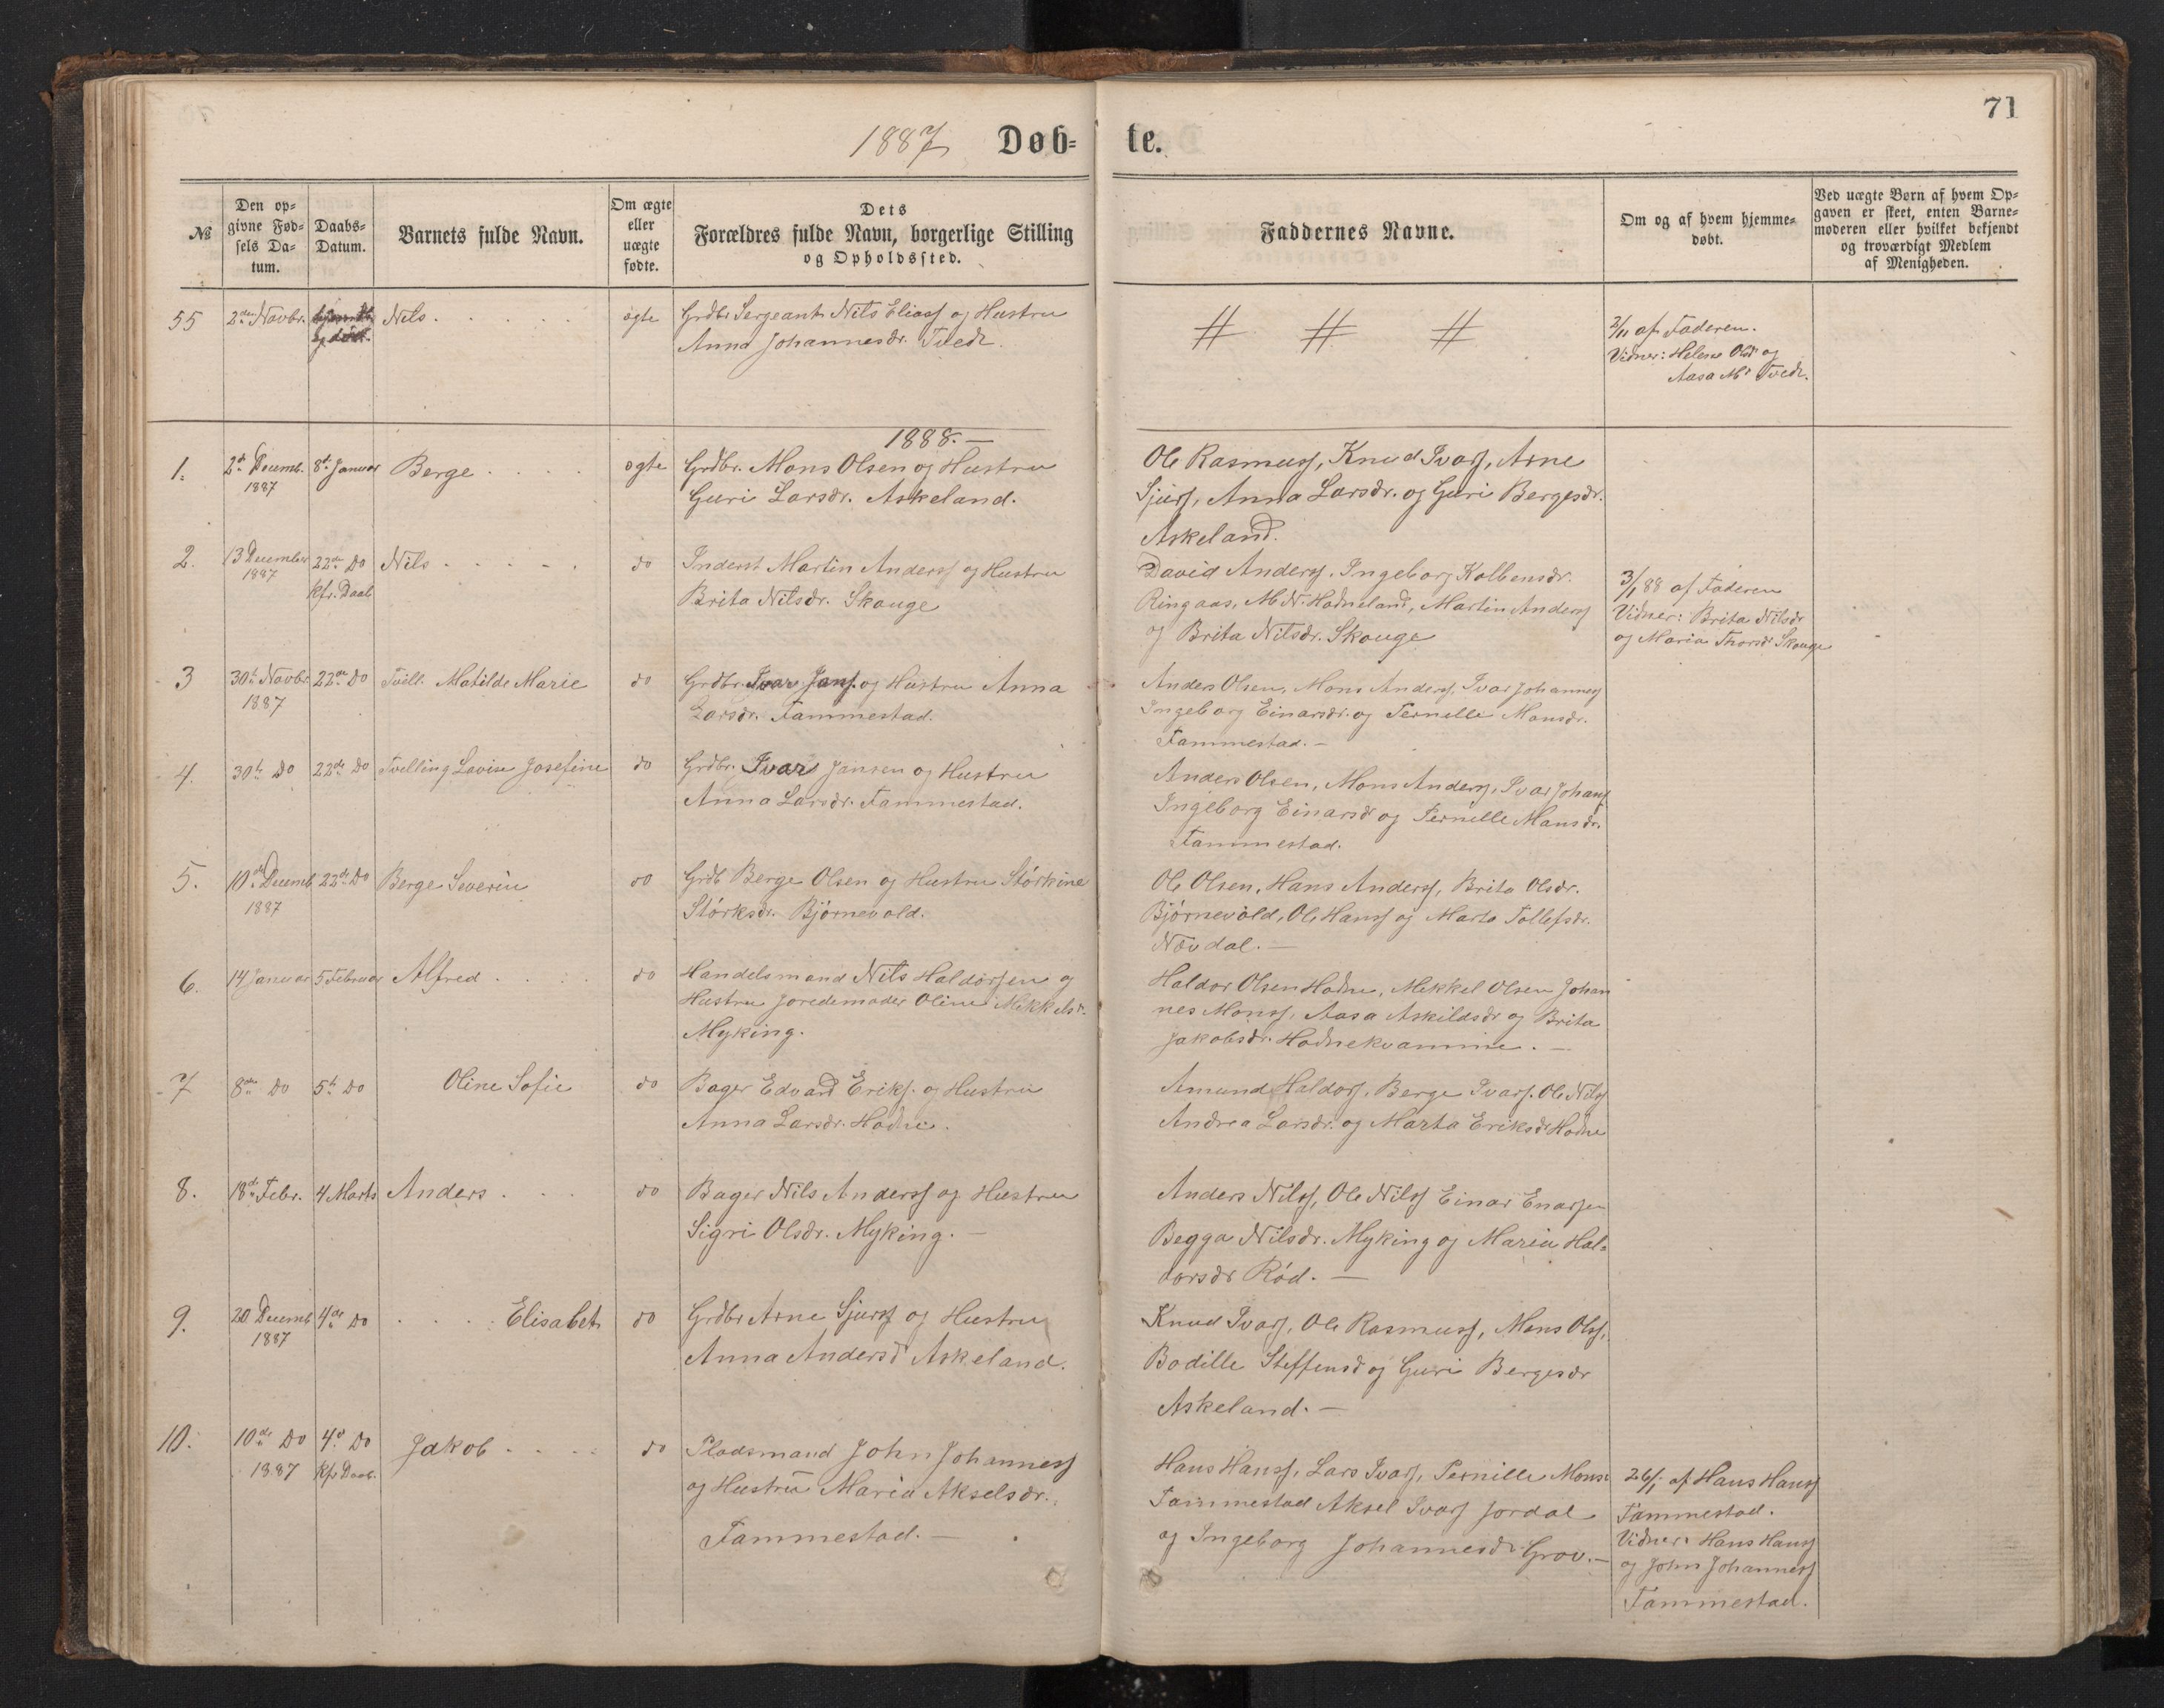 71
1887 Døb- te.
№
Den opgivne Fødsels Datum.
Daabs-Datum.
Barnets fulde Navn.
Om ægte eller uægte fødte.
Dets
Forældres fulde Navn, borgerlige Stilling
og Opholdssted.
Faddernes Navne.
Om og af hvem hjemmedøbt.
Ved uægte Børn af hvem Opgaven er skeet, enten Barnemoderen eller hvilket bekjendt og troværdigt Medlem af Menigheden.
55 2den Novbr. Nils ægte Grdbr Sergeant Nils Eliass og Hustru
Anna Johannesdr. Tvedt.
# # #
2/11 af Faderen.
Vidner: Helene Olsdr og
Aasa Md Tvedt.
1888.
1. 2d Decemb. 8d Januar Berge ogte Grdbr. Mons Olsen og Hustru
1887 Guri Larsdr. Askeland.
Ole Rasmuss, Knud Ivars, Arne
Sjurs, Anna Larsdr. og Guri Bergesdr.
Askeland.
2. 13 December 22de Do Nils do Inderst Martin Anderss og Hustru
1887 Kfr. Daab Brita Nilsdr. Skauge
David Anderss. Ingeborg Kolbensdr.
Ringaas, M. N. Hodneland, Martin Anderss
og Brita Nilsdr. Skauge
3/1 88 af Faderen
Vidner: Brita Nilsdr
og Maria Thorsdr Skauge
3 30te Novbr 22de Do Tvill. Matilde Marie do Grdbr. Ivar Jans. og Hustru Anna
1887 Larsdr. Fammestad.
Anders Olsen, Mons Anders, Ivar Johannes
Ingeborg Einarsdr. og Pernille Monsdr.
Fammestad.
4. 30te Do 22de Do Tvilling Lovise Josefine do Grdbr. Ivar Jansen og Hustru
Anna Larsdr. Fammestad.
Anders Olsen, Mons Anders, Ivar Johans
Ingeborg Einarsdr og Pernille Monsdr.
Fammestad.
5. 10de Decemb 22de Do Berge Severin do Grdb Berge Olsen og Hustru Störkine
1887 Störksdr. Björnevold.
Ole Olsen, Hans Anderss, Brita Olsdr.
Björnevold, Ole Hanss og Marta Tollefsdr.
Nævdal.
6. 14 Januar 5 Februar Alfred do Handelsmand Nils Haldorsen og
Hustru Jordemoder Oline Mikkelsdr.
Myking.
Haldor Olsen Hodne, Mikkel Olsen Johan
nes Monss, Aasa Askildsdr og Brita
Jakobsdr. Hodnekvamme.
7 8de Do 5te Do Oline Sofie do Bager Edvard Eriks. og Hustru
Anna Larsdr. Hodne.
Amund Haldors, Berge Ivars. Ole Nils
Andrea Larsdr. og Marta Eriksdr Hodne
8. 18de Febr. 4 Marts Anders do Bager Nils Anderss og Hustru
Sigri Olsdr. Myking.
Anders Nilss, Ole Nilss Einar Enarsen
Begga Nilsdr. Myking og Maria Hal-
dorsdr Röd.
9. 20 Decemb 4de Do Elisabet do Grdbr Arne Sjurss og Hustru
1887 Anna Andersd Askeland.
Knud Ivars, Ole Rasmuss, Mons Olss,
Bodille Steffensd og Guri Bergesdr
Askeland.
10. 10de Do 4d Do Jakob do Pladsmand John Johanness
1887 Kfr Daab. og Hustru Maria Akselsdr.
Fammestad.
Hans Hanss, Lars Ivars, Pernille Monsd
Fammestad Aksel Ivars Jordal
og Ingeborg Johannesdr Grov.
26/1 af Hans Hanss
Fammestad.
Vidner: Hans Hanss
og John Johanness
Fammestad.